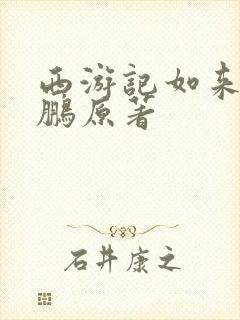 西游記如来
鵬原著
石井康之